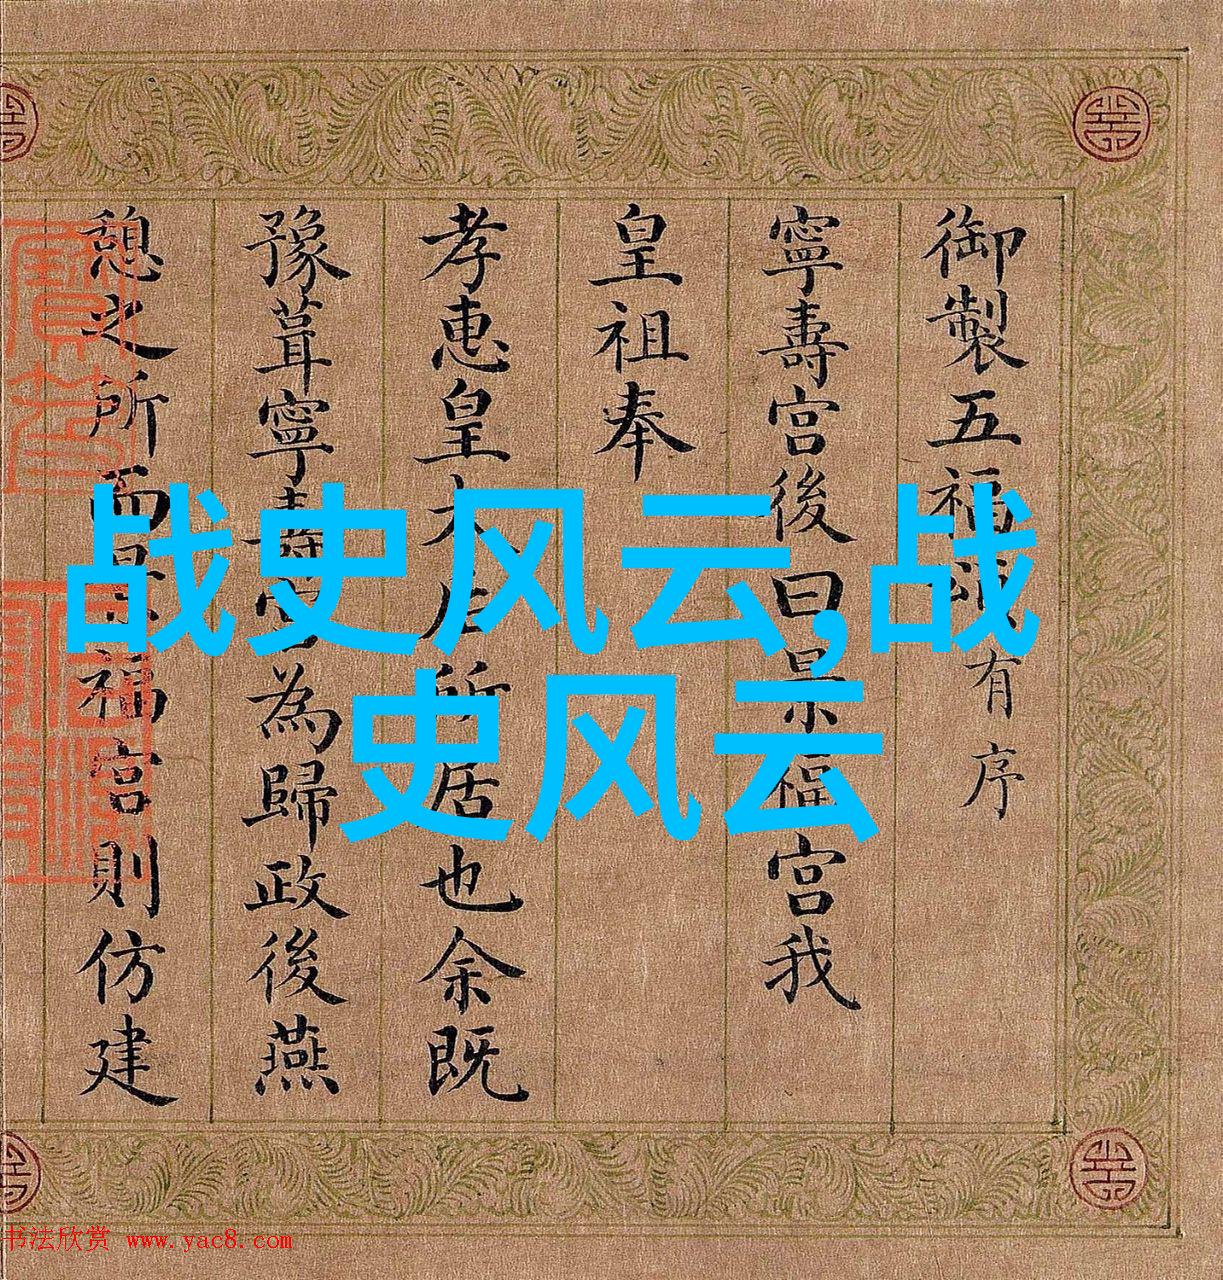 御製五福頌有序
寧壽宮後曰景福宮我
皇祖奉
孝惠皇太后所居也余既
豫葺寧壽宮為歸政後燕
憩之所而景福宮則仿建
战史风云,战
史风云
书法欣赏 www.yac8.com